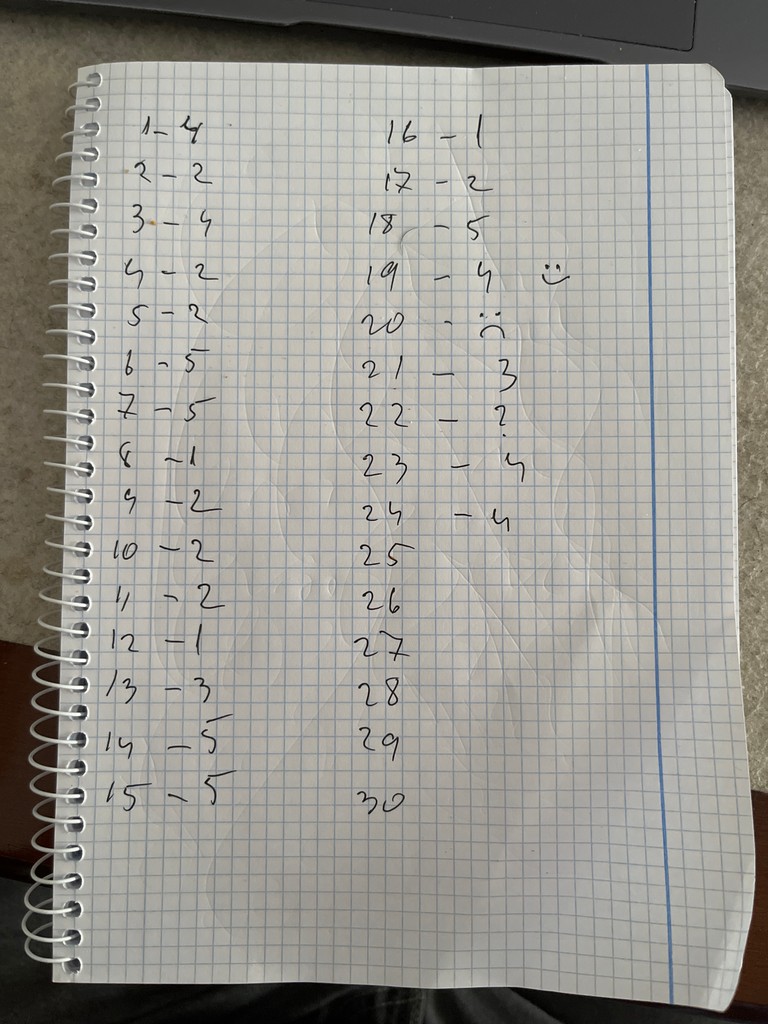 1 - 4
2 - 2
3 - 4
4 - 2
5 - 2
6 - 5
7 - 5
8 - 1
9 - 2
10 - 2
11 - 2
12 - 1
13 - 3
14 - 5
15 - 5
16 - 1
17 - 2
18 - 5
19 - 4 :)
20 - :(
21 - 3
22 - ?
23 - 4
24 - 4
25
26
27
28
29
30